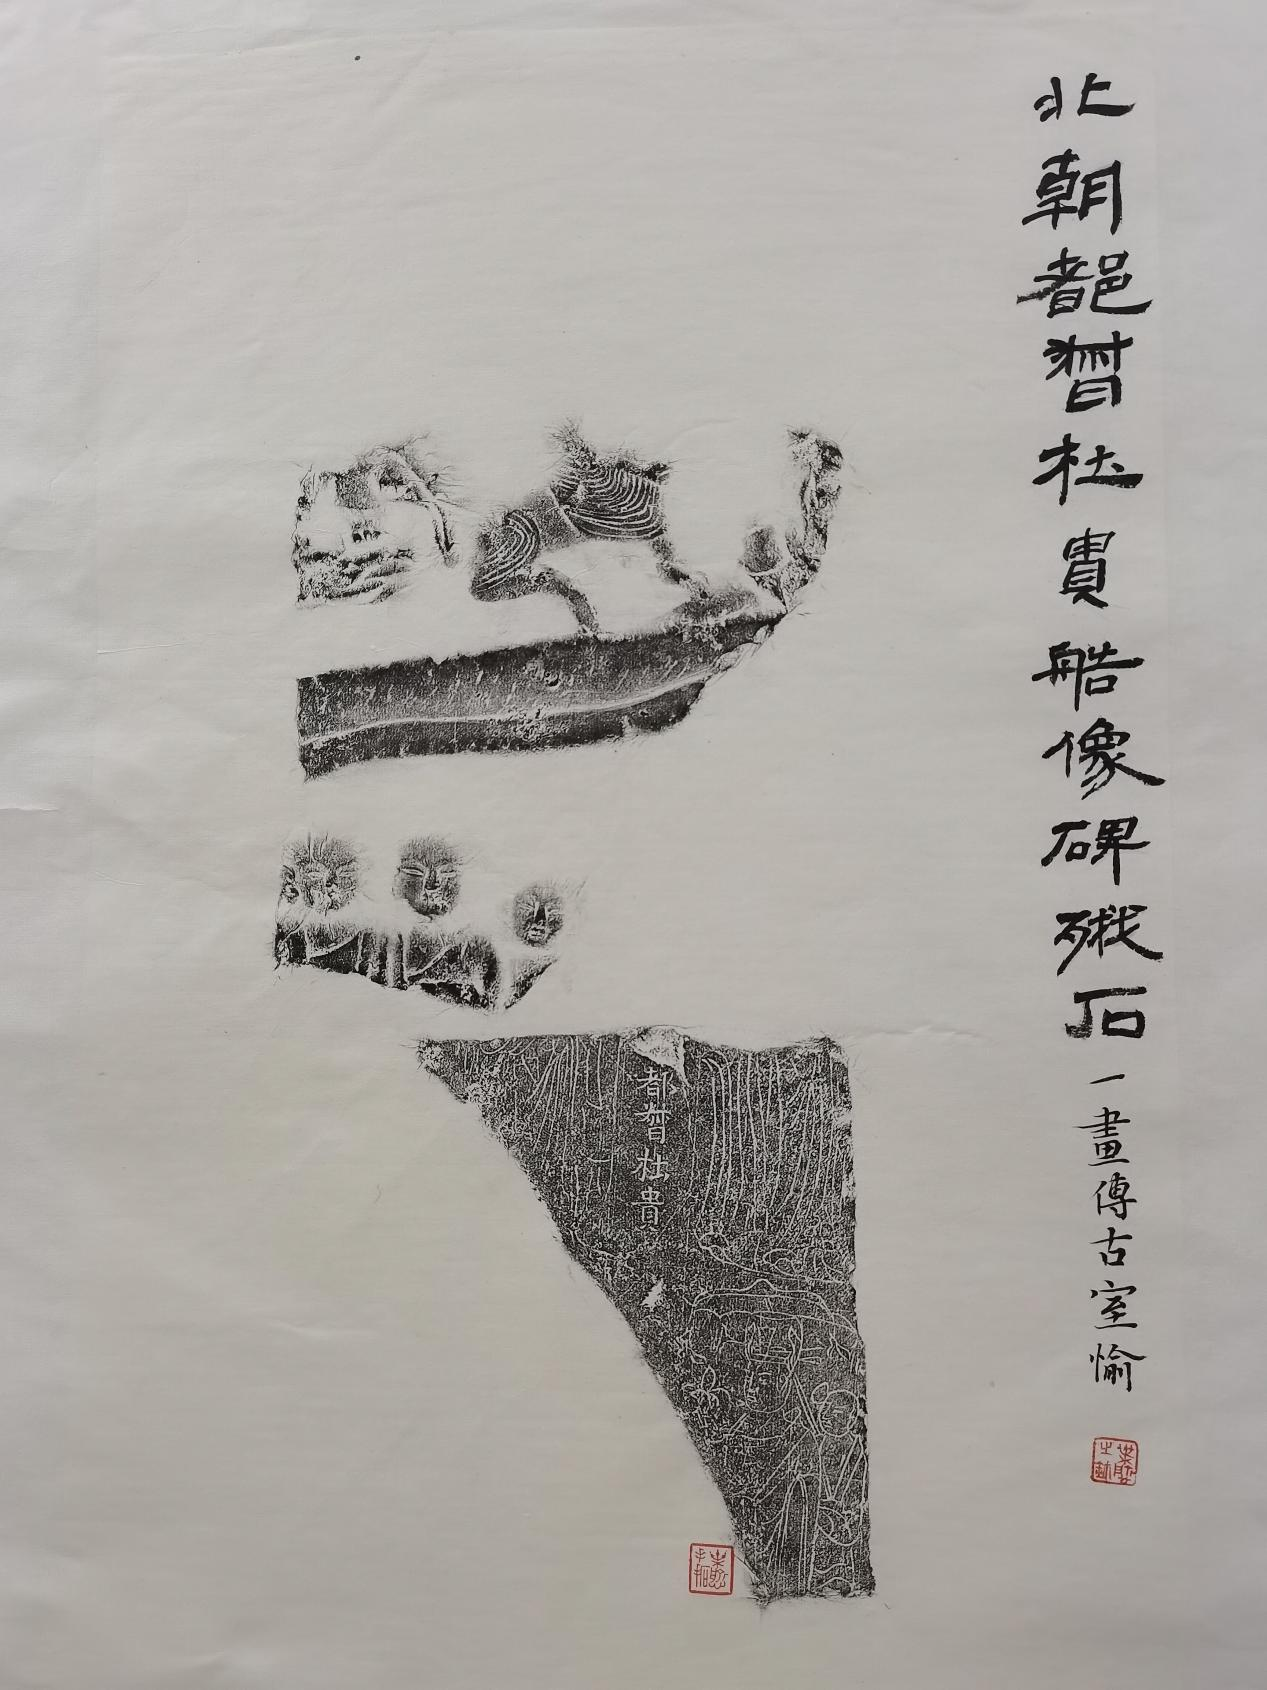 北朝都督杜貴艁像碑殘石
一畫傳古室愉
都督杜貴